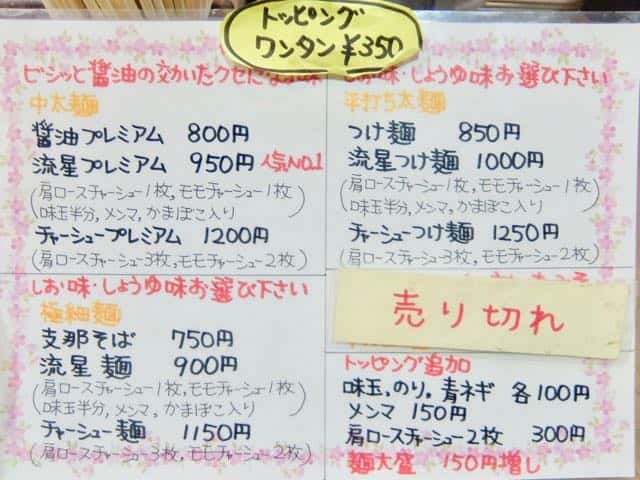 トッピング
ワンタン ¥350
ビシッと醤油の効いたクセに
中太麺
醤油プレミアム 800円
流星プレミアム 950円 人気NO.1
(肩ロースチャーシュー1枚,モモチャーシュー1枚
味玉半分,メンマ,かまぼこ入り)
チャーシュープレミアム 1200円
(肩ロースチャーシュー3枚,モモチャーシュー2枚)
しお味・しょうゆ味お選び下さい
平打ち太麺
つけ麺 850円
流星つけ麺 1000円
(肩ロースチャーシュー1枚,モモチャーシュー1枚
味玉半分,メンマ,かまぼこ入り)
チャーシューつけ麺 1250円
(肩ロースチャーシュー3枚,モモチャーシュー2枚)
しお味・しょうゆ味お選び下さい
極細麺
支那そば 750円
流星麺 900円
(肩ロースチャーシュー1枚,モモチャーシュー1枚
味玉半分,メンマ,かまぼこ入り)
チャーシュー麺 1150円
(肩ロースチャーシュー3枚,モモチャーシュー2枚)
売り切れ
トッピング追加
味玉.のり.青ネギ 各100円
メンマ 150円
肩ロースチャーシュー2枚 300円
麺大盛 150円増し